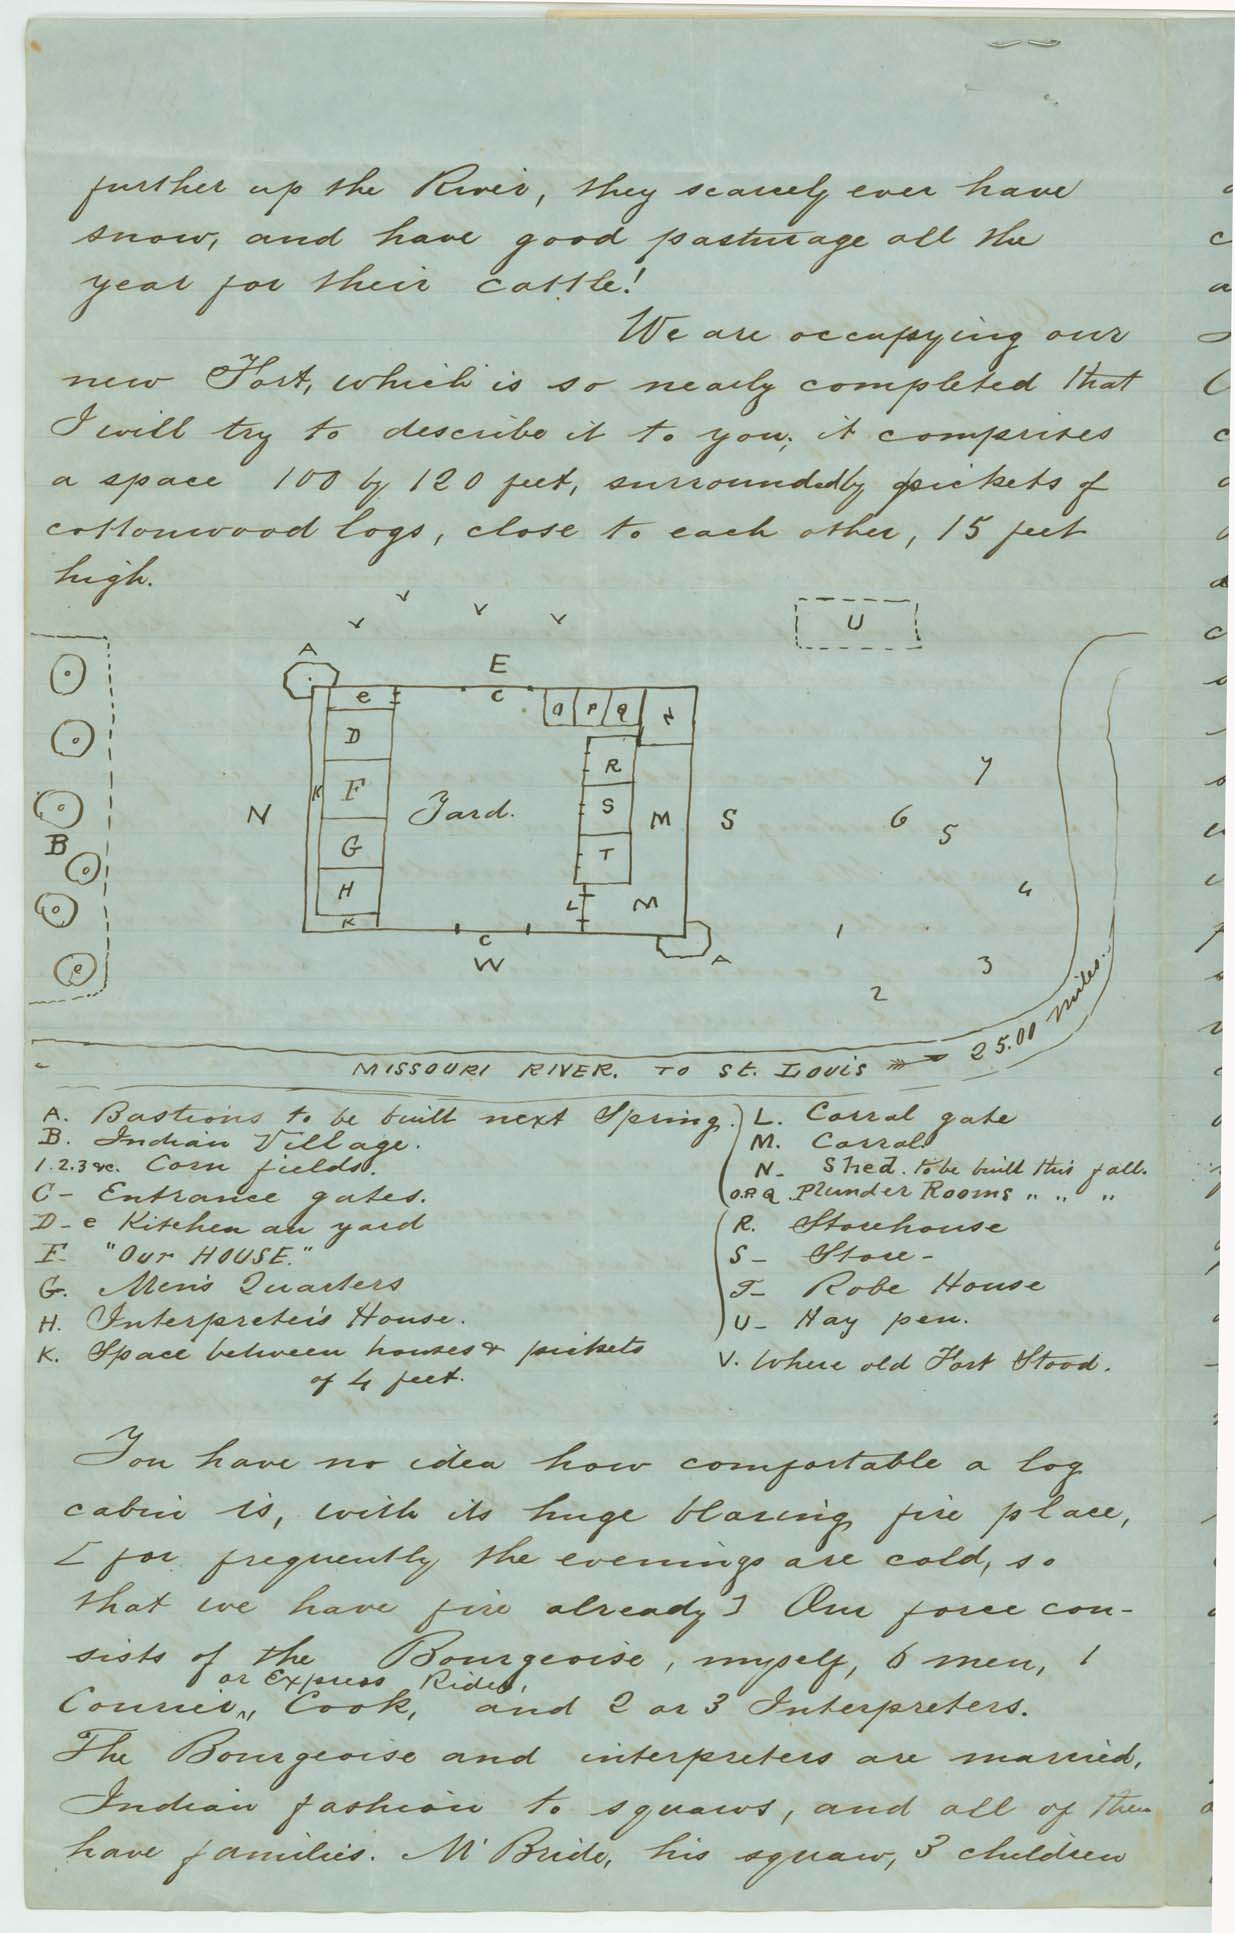 further up the River, they scarcely ever have
snow, and have good pasturage all the
year for their cattle!
We are occupying our
new Fort, which is so nearly completed that
I will try to describe it to you; it comprises
a space 100 by 120 feet, surrounded by pickets of
cottonwood logs, close to each other, 15 feet
high.
v v v v
U
A
E
e C O P Q N
D
R
7
K F Yard. S M S
N
6 5
B
G T
4
H L M
K
1
C
W
A
3
2
25.00 miles.
MISSOURI RIVER. TO St. LOUIS
A. Bastions to be built next Spring.
B. Indian Village.
1.2.3 &c. Corn fields.
C- Entrance gates.
D- e Kitchen an yard
F- "Our HOUSE."
G. Men's Quarters
H. Interpreter's House.
K. Space between houses & pickets
of 4 feet.
L. Corral gate
M. Corral.
N- Shed. to be built this fall.
O.P.Q. Plunder Rooms " " "
R. Storehouse
S- Store-
T- Robe House
U- Hay pen.
V. Where old Fort Stood.
You have no idea how comfortable a log
cabin is, with its huge blazing fire place,
[for frequently the evenings are cold, so
that we have fire already] Our force con-
sists of the Bourgeoise, myself, 6 men, 1
or Express Rider,
Courier, Cook, and 2 or 3 Interpreters.
The Bourgeoise and interpreters are married,
Indian fashion to squaws, and all of them
have families. M'Bride, his squaw, 3 children